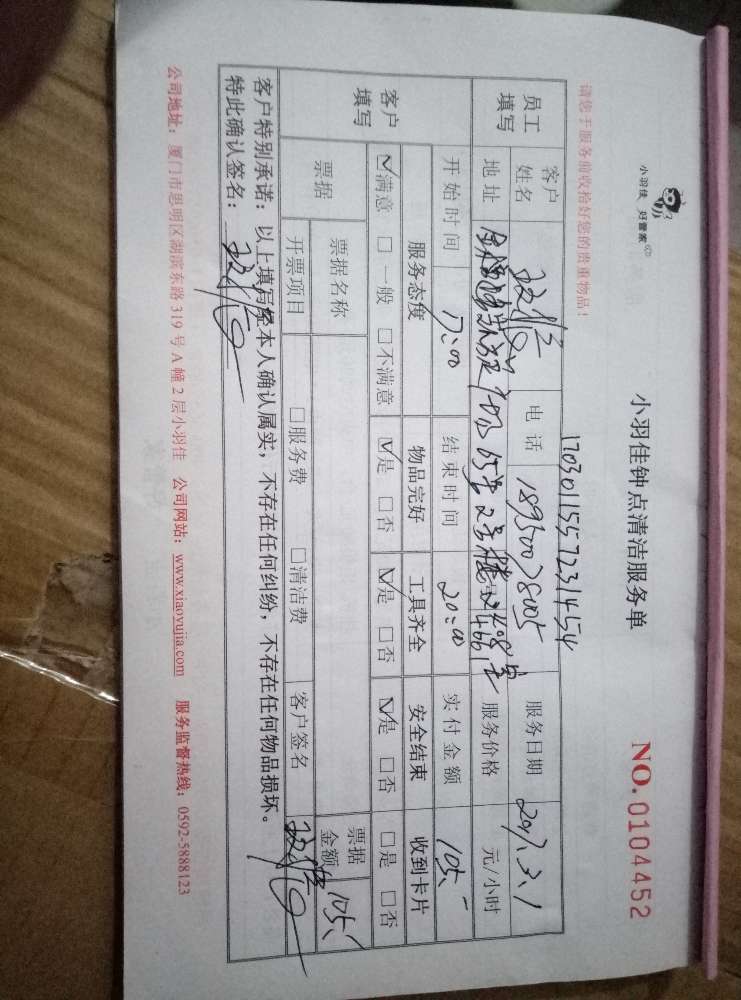 小羽佳 好管家
小羽佳钟点清洁服务单
NO. 0104452
请您于服务前收拾好您的贵重物品！
1703011557231454
员工填写 客户姓名 电话 18950078005 服务日期 2017.3.1
地址 服务价格 元/小时
客户填写 开始时间 17:00 结束时间 20:00 实付金额 105.-
服务态度 物品完好 工具齐全 安全结束 收到卡片
☑满意 □一般 □不满意 ☑是 □否 ☑是 □否 ☑是 □否 □是 □否
票据 票据名称 票据金额 105.-
开票项目 □服务费 □清洁费 客户签名
客户特别承诺：以上填写经本人确认属实，不存在任何纠纷，不存在任何物品损坏。
特此确认签名：
公司地址：厦门市思明区湖滨东路 319 号 A 幢 2 层小羽佳 公司网站：www.xiaoyujia.com 服务监督热线：0592-5888123